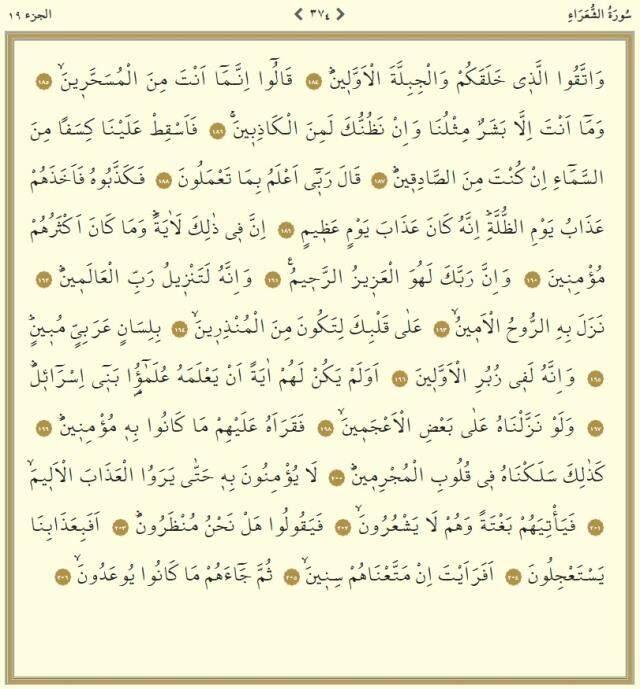 سُورَةُ الشُّعَرَاءِ ٣٧٤ الجزء ١٩
وَاتَّقُوا الَّذٖي خَلَقَكُمْ وَالْجِبِلَّةَ الْاَوَّلٖينَؕ ١٨٤ قَالُٓوا اِنَّـمَٓا اَنْتَ مِنَ الْمُسَحَّرٖينَۙ ١٨٥
وَمَٓا اَنْتَ اِلَّا بَشَرٌ مِثْلُنَا وَاِنْ نَظُنُّكَ لَمِنَ الْـكَاذِبٖينَۚ ١٨٦ فَاَسْقِطْ عَلَيْنَا كِسَفًا مِنَ
السَّمَٓاءِ اِنْ كُنْتَ مِنَ الصَّادِقٖينَؕ ١٨٧ قَالَ رَبّٖٓي اَعْلَمُ بِمَا تَعْمَلُونَ ١٨٨ فَـكَذَّبُوهُ فَاَخَذَهُمْ
عَذَابُ يَوْمِ الظُّلَّةِؕ اِنَّهُ كَانَ عَذَابَ يَوْمٍ عَظٖيمٍ ١٨٩ اِنَّ فٖي ذٰلِكَ لَاٰيَةًؕ وَمَا كَانَ اَكْثَرُهُمْ
مُؤْمِنٖينَ ١٩٠ وَاِنَّ رَبَّكَ لَهُوَ الْعَزٖيزُ الرَّحٖيمُࣖ ١٩١ وَاِنَّهُ لَتَنْزٖيلُ رَبِّ الْعَالَمٖينَؕ ١٩٢
نَزَلَ بِهِ الرُّوحُ الْاَمٖينُۙ ١٩٣ عَلٰى قَلْبِكَ لِتَكُونَ مِنَ الْمُنْذِرٖينَۙ ١٩٤ بِلِسَانٍ عَرَبِيٍّ مُبٖينٍؕ
١٩٥ وَاِنَّهُ لَفٖي زُبُرِ الْاَوَّلٖينَ ١٩٦ اَوَلَمْ يَكُنْ لَهُمْ اٰيَةً اَنْ يَعْلَمَهُ عُلَمٰٓؤُ۬ا بَنٖٓي اِسْرَٓائٖلَؕ
١٩٧ وَلَوْ نَزَّلْنَاهُ عَلٰى بَعْضِ الْاَعْجَمٖينَۙ ١٩٨ فَقَرَاَهُ عَلَيْهِمْ مَا كَانُوا بِهٖ مُؤْمِنٖينَؕ ١٩٩
كَذٰلِكَ سَلَكْنَاهُ فٖي قُلُوبِ الْمُجْرِمٖينَؕ ٢٠٠ لَا يُؤْمِنُونَ بِهٖ حَتّٰى يَرَوُا الْعَذَابَ الْاَلٖيمَۙ
٢٠١ فَيَأْتِيَهُمْ بَغْتَةً وَهُمْ لَا يَشْعُرُونَۙ ٢٠٢ فَيَقُولُوا هَلْ نَحْنُ مُنْظَرُونَؕ ٢٠٣ اَفَبِعَذَابِنَا
يَسْتَعْجِلُونَ ٢٠٤ اَفَرَاَيْتَ اِنْ مَتَّعْنَاهُمْ سِنٖينَۙ ٢٠٥ ثُمَّ جَٓاءَهُمْ مَا كَانُوا يُوعَدُونَۙ ٢٠٦